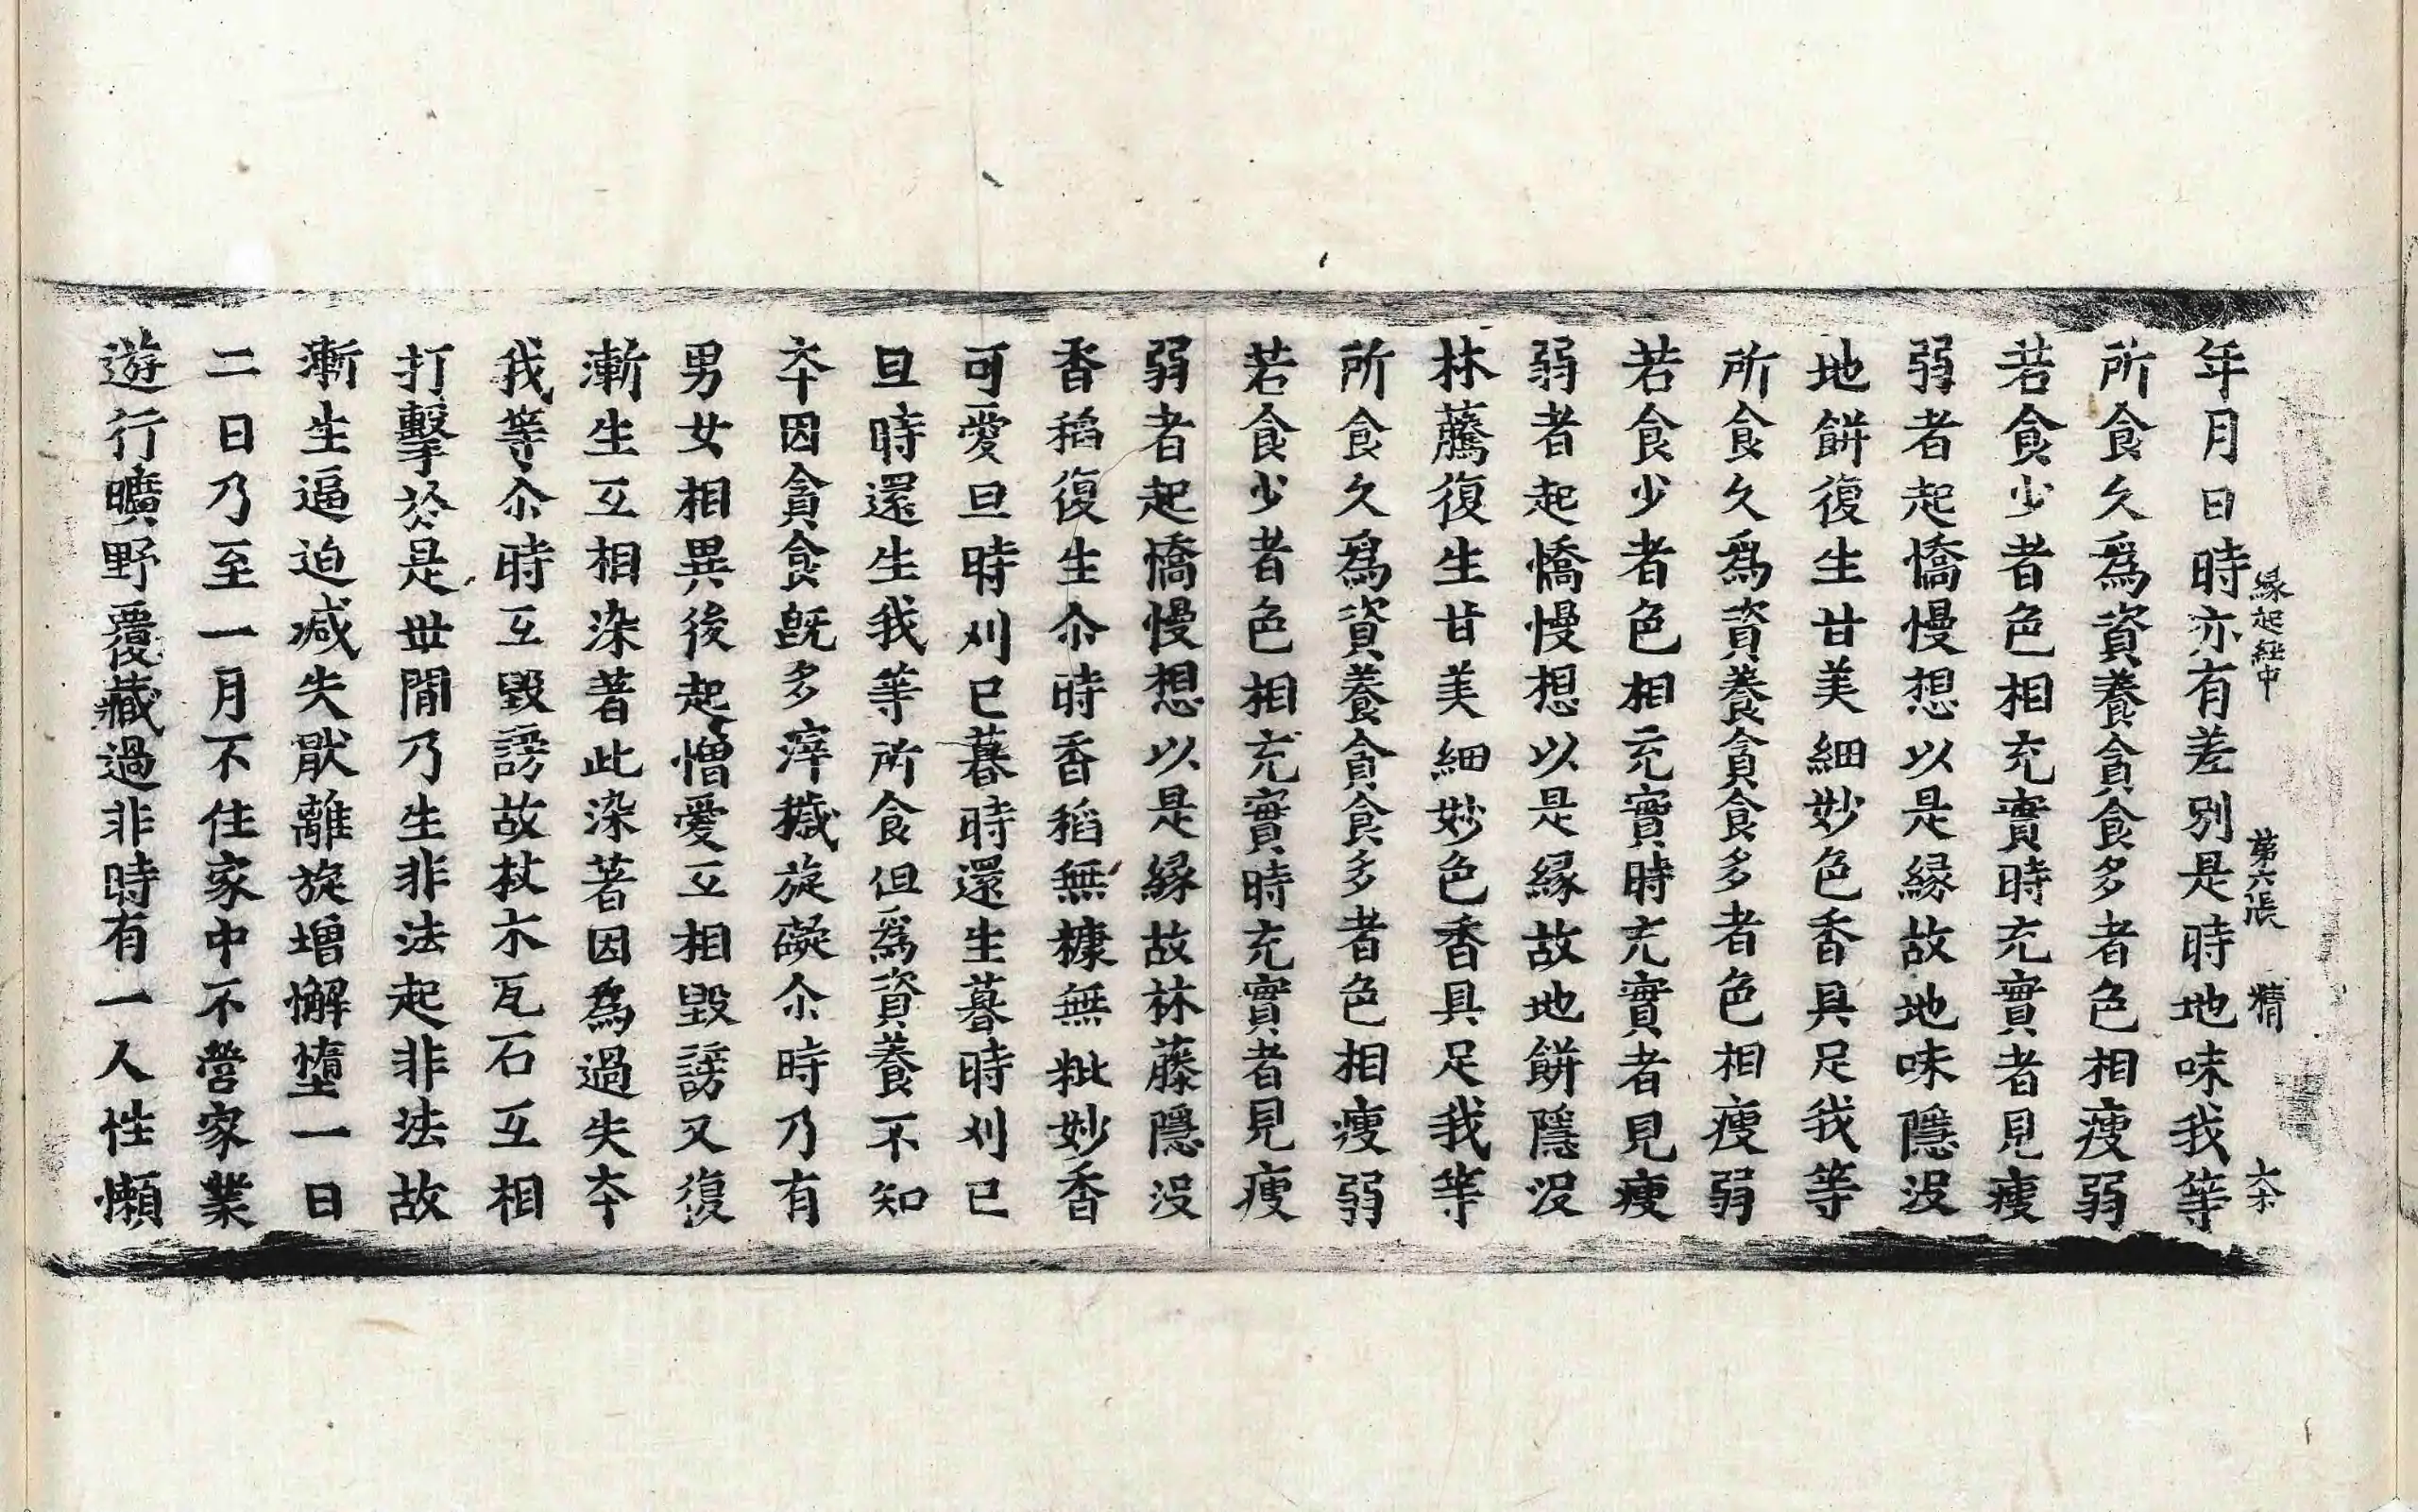 年月日時亦有差別是時地味我等
縁起經中 第六張 精
所食久爲資養貪食多者色相瘦弱
若食少者色相充實時充實者見瘦
弱者起憍慢想以是縁故地味隱没
地餅復生甘美細妙色香具足我等
所食久爲資養貪食多者色相瘦弱
若食少者色相充實時充實者見瘦
弱者起憍慢想以是縁故地餅隱没
林藤復生甘美細妙色香具足我等
所食久爲資養貪食多者色相瘦弱
若食少者色相充實時充實者見瘦
弱者起憍慢想以是縁故林藤隱没
香稻復生尒時香稻無糠無粃妙香
可愛旦時刈已暮時還生暮時刈已
旦時還生我等所食但爲資養不知
夲因貪食旣多滓穢旋礙尒時乃有
男女相異後起憎愛互相毀謗又復
漸生互相染著此染著因爲過失夲
我等尒時互毀謗故杖木瓦石互相
打擊於是丗閒乃生非法起非法故
漸生逼迫减失猒離旋增懈墮一日
二日乃至一月不住家中不營家業
遊行曠野覆藏過非時有一人性懶